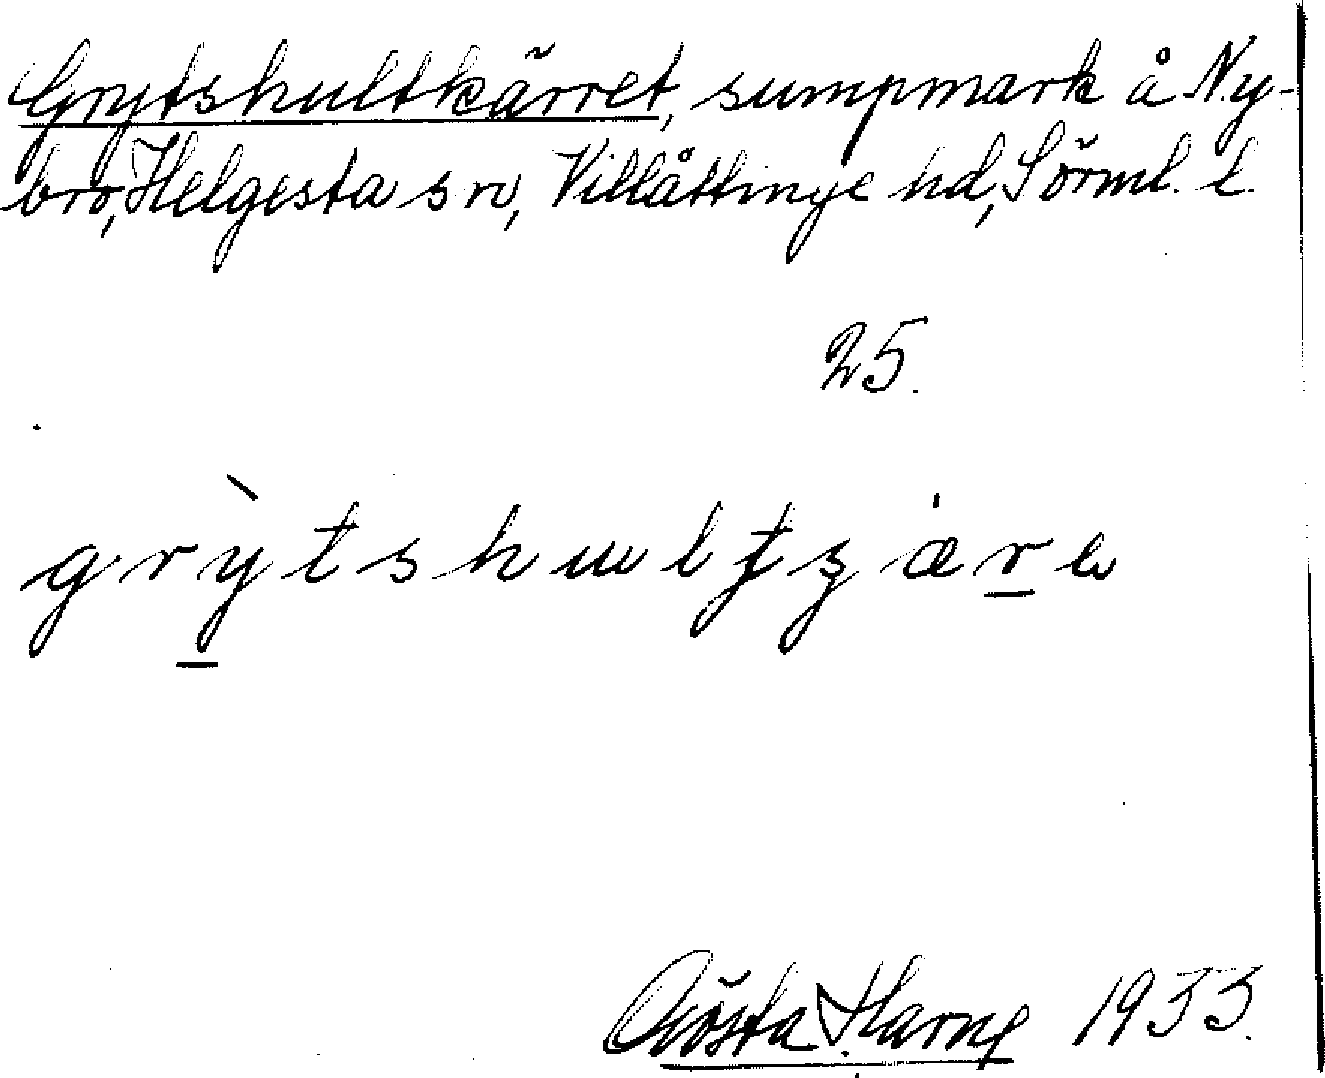 Grytshultkärret, sumpmark å Ny-
bro, Helgesta sn, Villåttinge hd, Sörml. l.
25.
grỳtshultʒæra
Gösta Harne 1933.